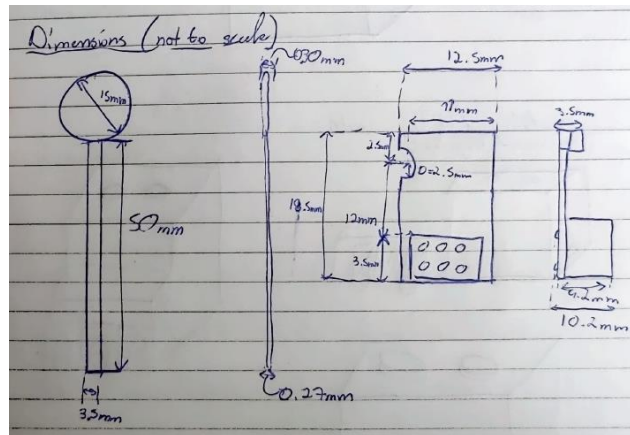 Dimensions (not to scale)
15mm
50mm
3.5mm
0.27mm
12.5mm
11mm
2.5mm
D=2.5mm
18.5mm
12mm
3.5mm
3.5mm
9.2mm
10.2mm